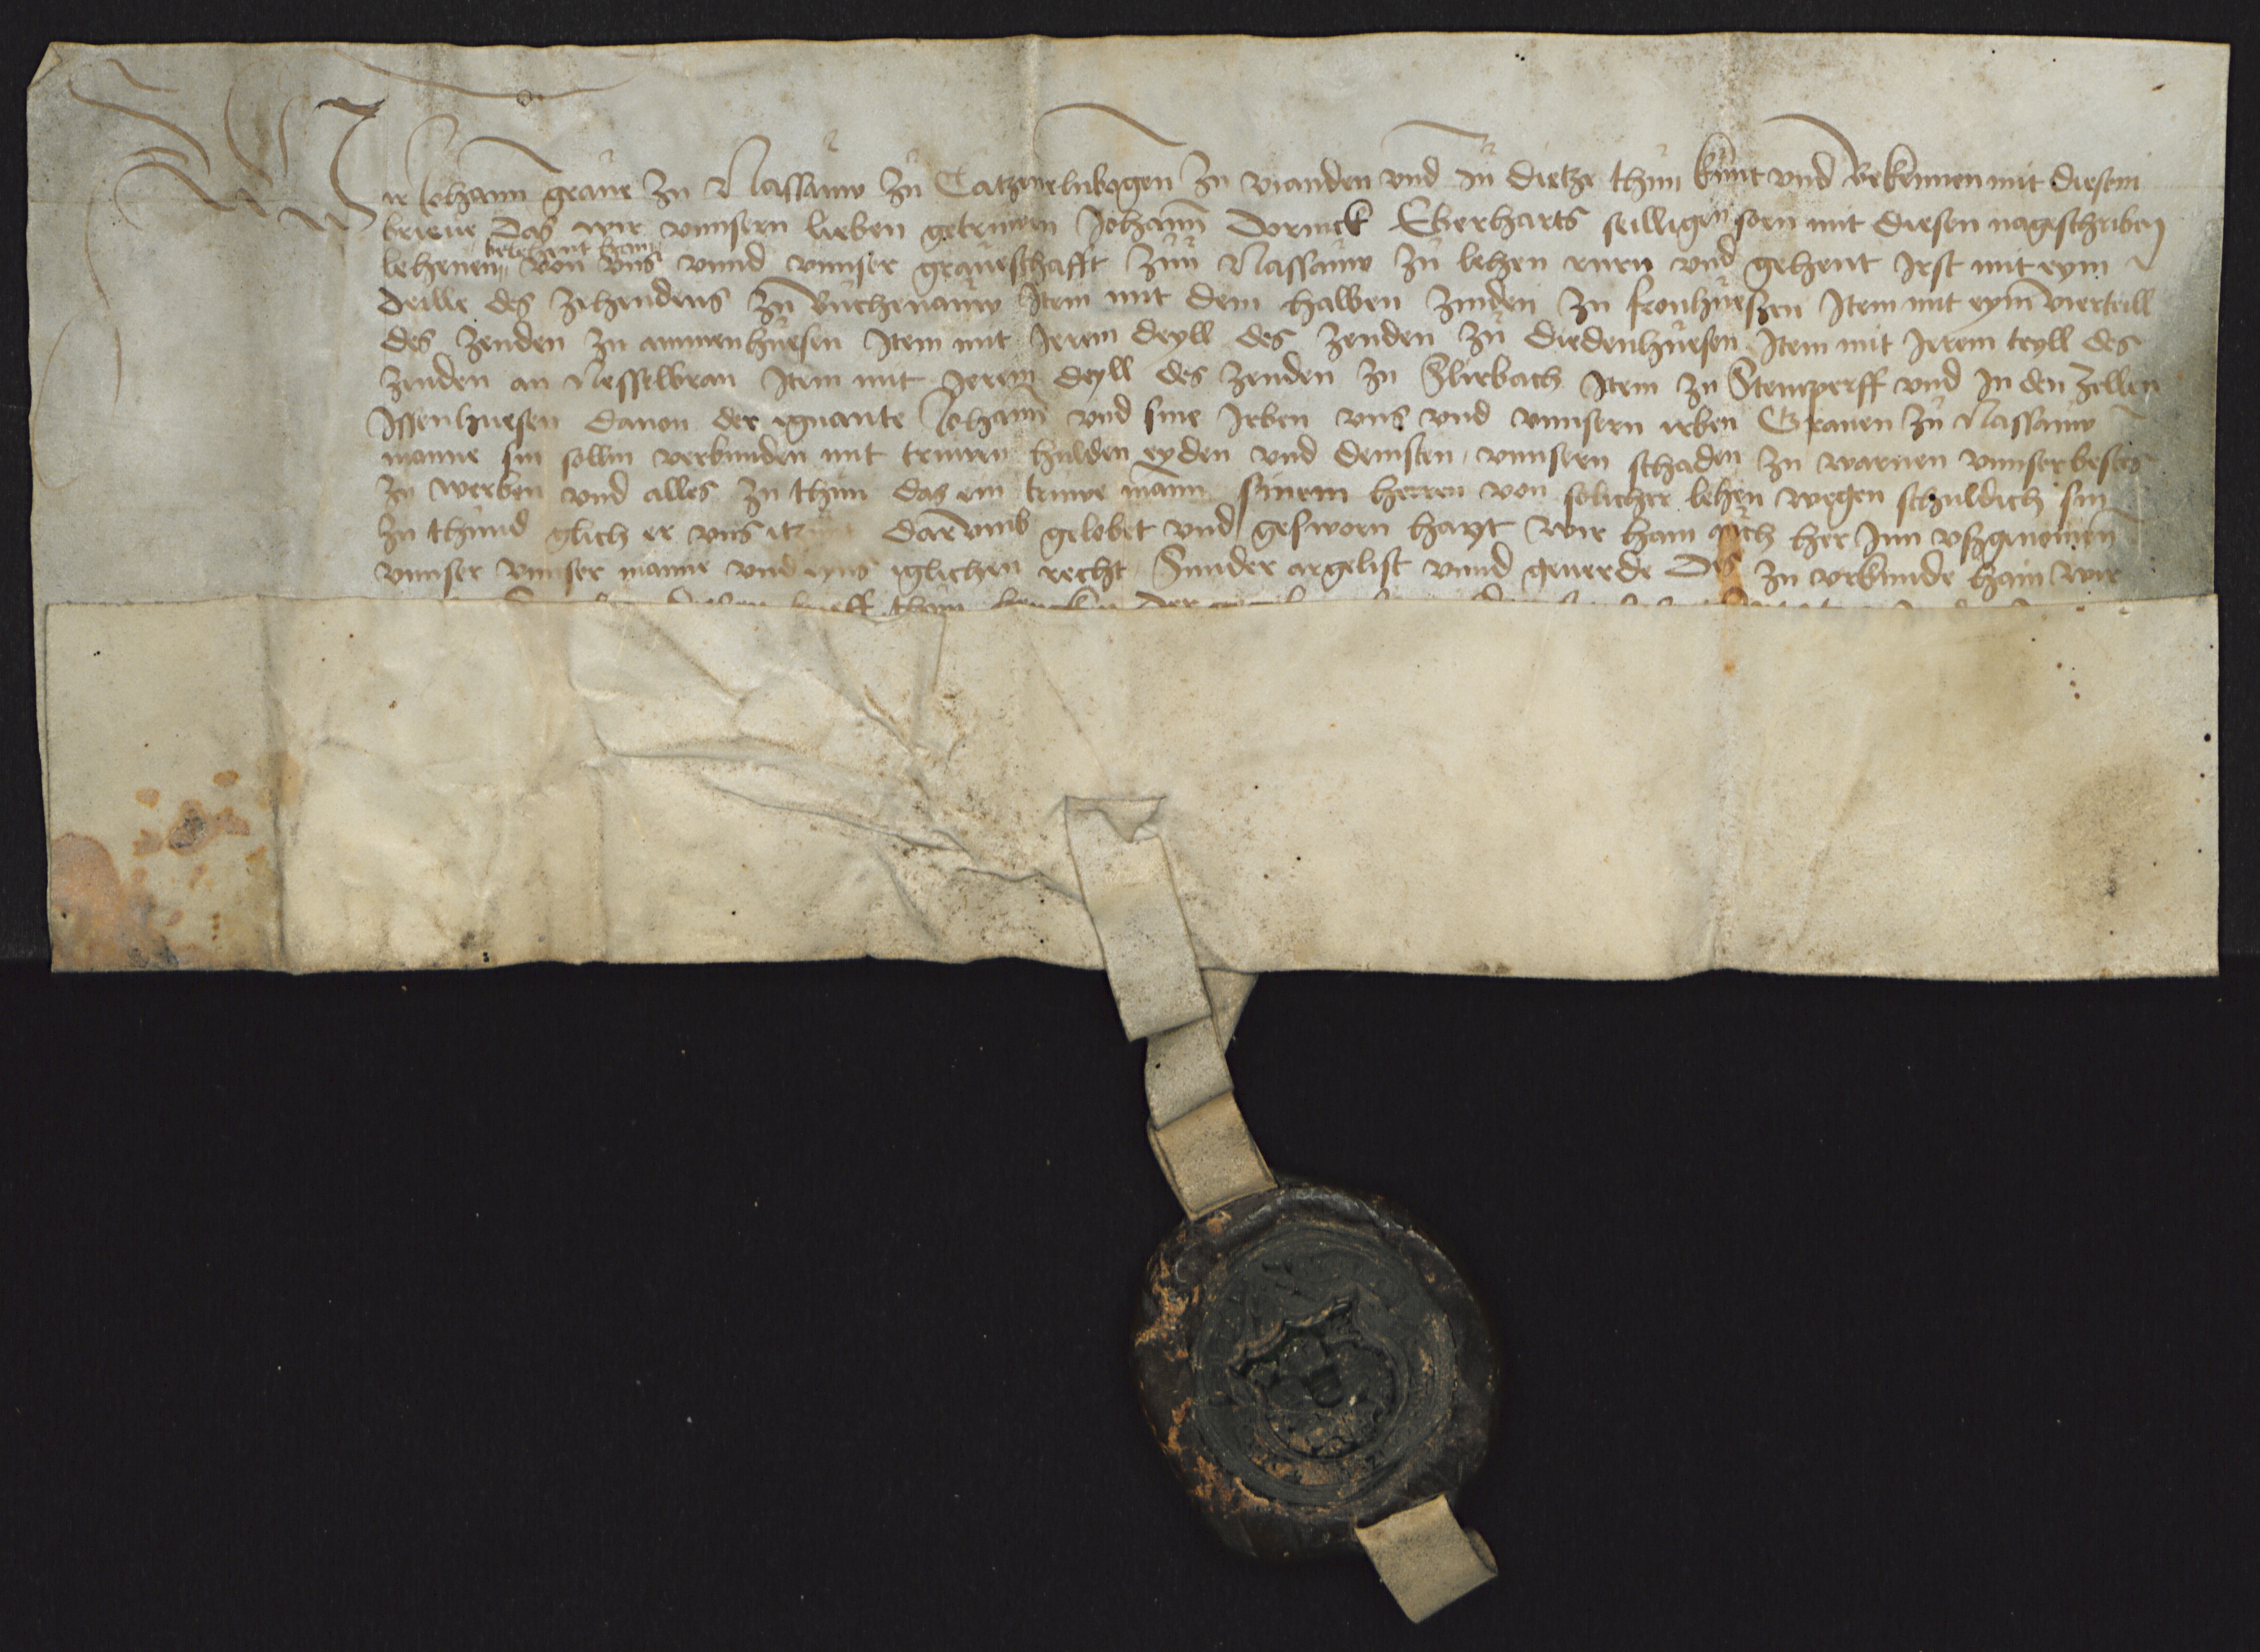 Wir Johann graue zu Nassauw zu Catzenelnbogen zu vianden vnd zu dietze thun kunt vnd bekennen mit diesem
brieue Das wir vnnsern lieben getruwen Johann Dornick Eberharts seilligen son mit diesen nageschriben
belehent hain
lehenen von vns vnnd vnnser graueschafft zuu Nassauw zu lehen rurn vnd gehent Irst mit eym
deille des zehendens zu Buchenauw Item mit dem halben zenden zu fronhuesen Item mit eym vierteill
des zenden zu ammenhuesen Item mit Jerem deyll des zenden zu diedenhuesen Item mit Jrem teyll des
zenden an Nesselbran Item mit Jerem deyll des zenden zu Slirbach Item zu Stemperff vnd In den Zellen
Issenhuesen dauon der egnante Johann vnd sine Irben vns vnd vnnsern erben Grauen zu Nassauw
manne sin sollen verbunden mit truwen hulden eyden vnd deinsten vnnsern schaden zu warnen vnnser bestes
zu werben vnd alles zu thun das ein truwe mann sinem herren von solicher lehen wegen schuldich sin
zu thund glich er vns itz darumb gelobet vnd gesworn hayt wir hain auch her Inn vszgnomen
vnnser vnnser manne vnd eyns iglichen recht Sunder argelist vnnd geuerde Des zu vrkunde hain wir